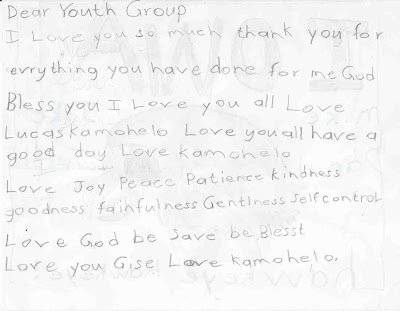 Dear Youth Group
I Love you so much thank you for
evrything you have done for me God
Bless you I Love you all Love
Lucas Kamohelo Love you all have a
good day Love Kamohelo
Love Joy Peace Patience kindness
goodness fainfulness Gentlness Self control
Love God be save be Blesst
Love you Gise Love kamohelo.